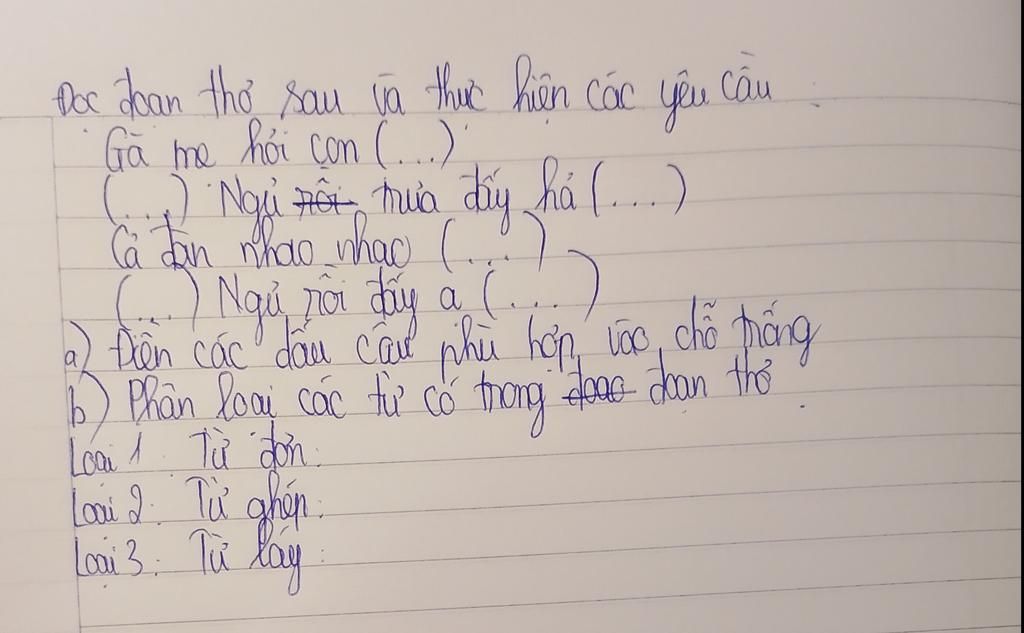 Đọc đoạn thơ sau và thực hiện các yêu cầu :
Gà mẹ hỏi con (...)
(...) Ngủ rồi trưa đấy hả (...)
Cả đàn nhao nhao (...)
(...) Ngủ rồi đấy ạ (...)
a) Điền các dấu câu phù hợp vào chỗ trống
b) Phân loại các từ có trong đoạn đoạn thơ
Loại 1. Từ đơn:
Loại 2. Từ ghép:
Loại 3. Từ láy: